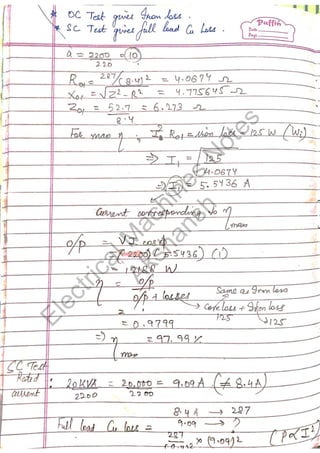 * OC Test gives Iron loss.
* SC Test gives full load Cu loss.
Puffin
Date
Page
a = 2200 = 10
220
R01 = 287/(8.4)² = 4.0674 Ω
X01 = √Z² - R² = 4.775645 Ω
Z01 = 52.7 = 6.273 Ω
8.4
For max η ; I² R01 = iron loss = 125 W (Wi)
=> I1 = √125
4.0674
=> I1 = 5.5436 A
Current corresponding to η max
o/p = V I cosφ
= (2200) (5.5436) (1)
= W
η = o/p
o/p + losses
Same as Iron loss
→ Core loss + Iron loss
125 125
= 0.9799
=> η max = 97.99 %
SC Test
Rated current : 20 kVA = 20,000 = 9.09 A (≠ 8.4 A)
2200 2200
8.4 A → 287
9.09 → ?
Full load Cu loss = 287 × (9.09)²
(8.4)²
(P ∝ I²)
Electrical Machines Notes